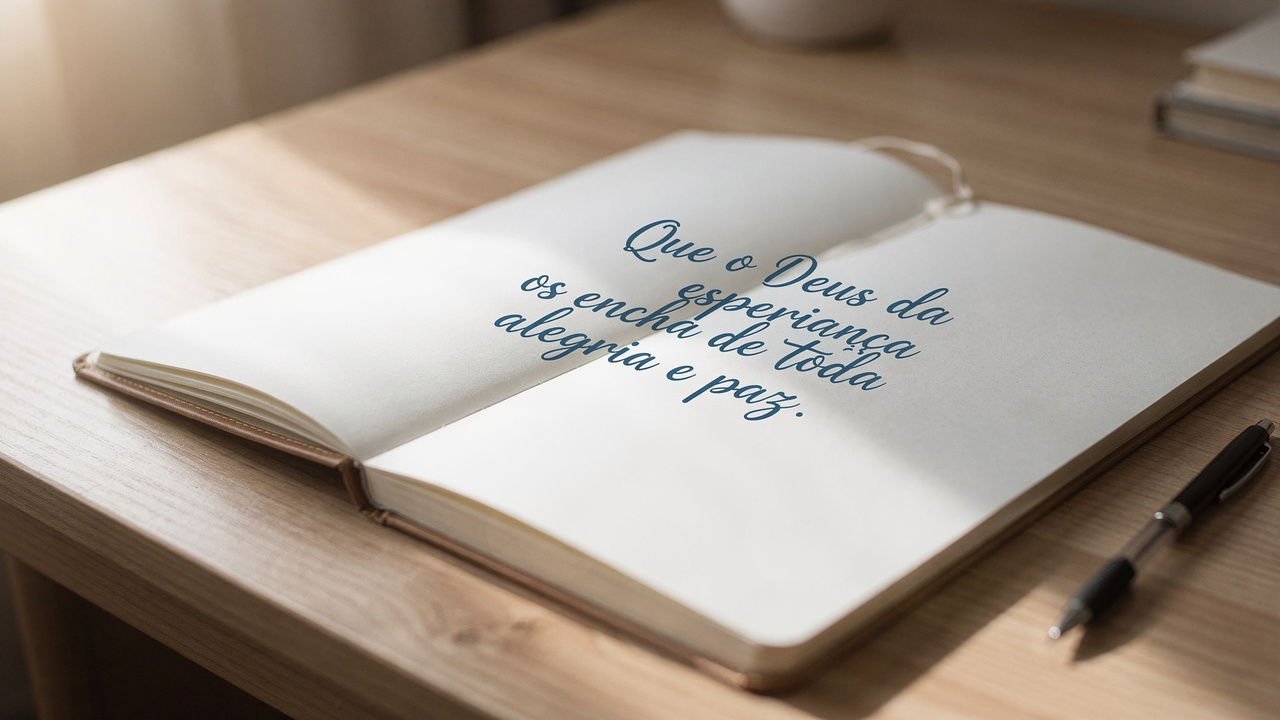 Que o Deus da
esperiança
os encha de toda
alegria e paz.